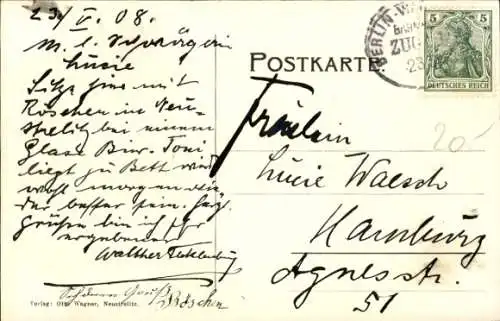 23/V. 08.
M. l. Schwägerin
Lucie
Sitze hier mit
Röschen in Neu-
strelitz bei einem
Glase Bier. Toni
liegt zu Bett wird
wohl morgen wie-
der besser sein. Herzl.
grüssen bin ich Ihr
ergebener
Walther
Schönen Gruß
Röschen
Verlag: Otto Wagner, Neustrelitz.
POSTKARTE.
BERLIN-
ZUG
5 5
DEUTSCHES REICH
20-
Fräulein
Lucie Waesch
Hamburg
Agnesstr.
51